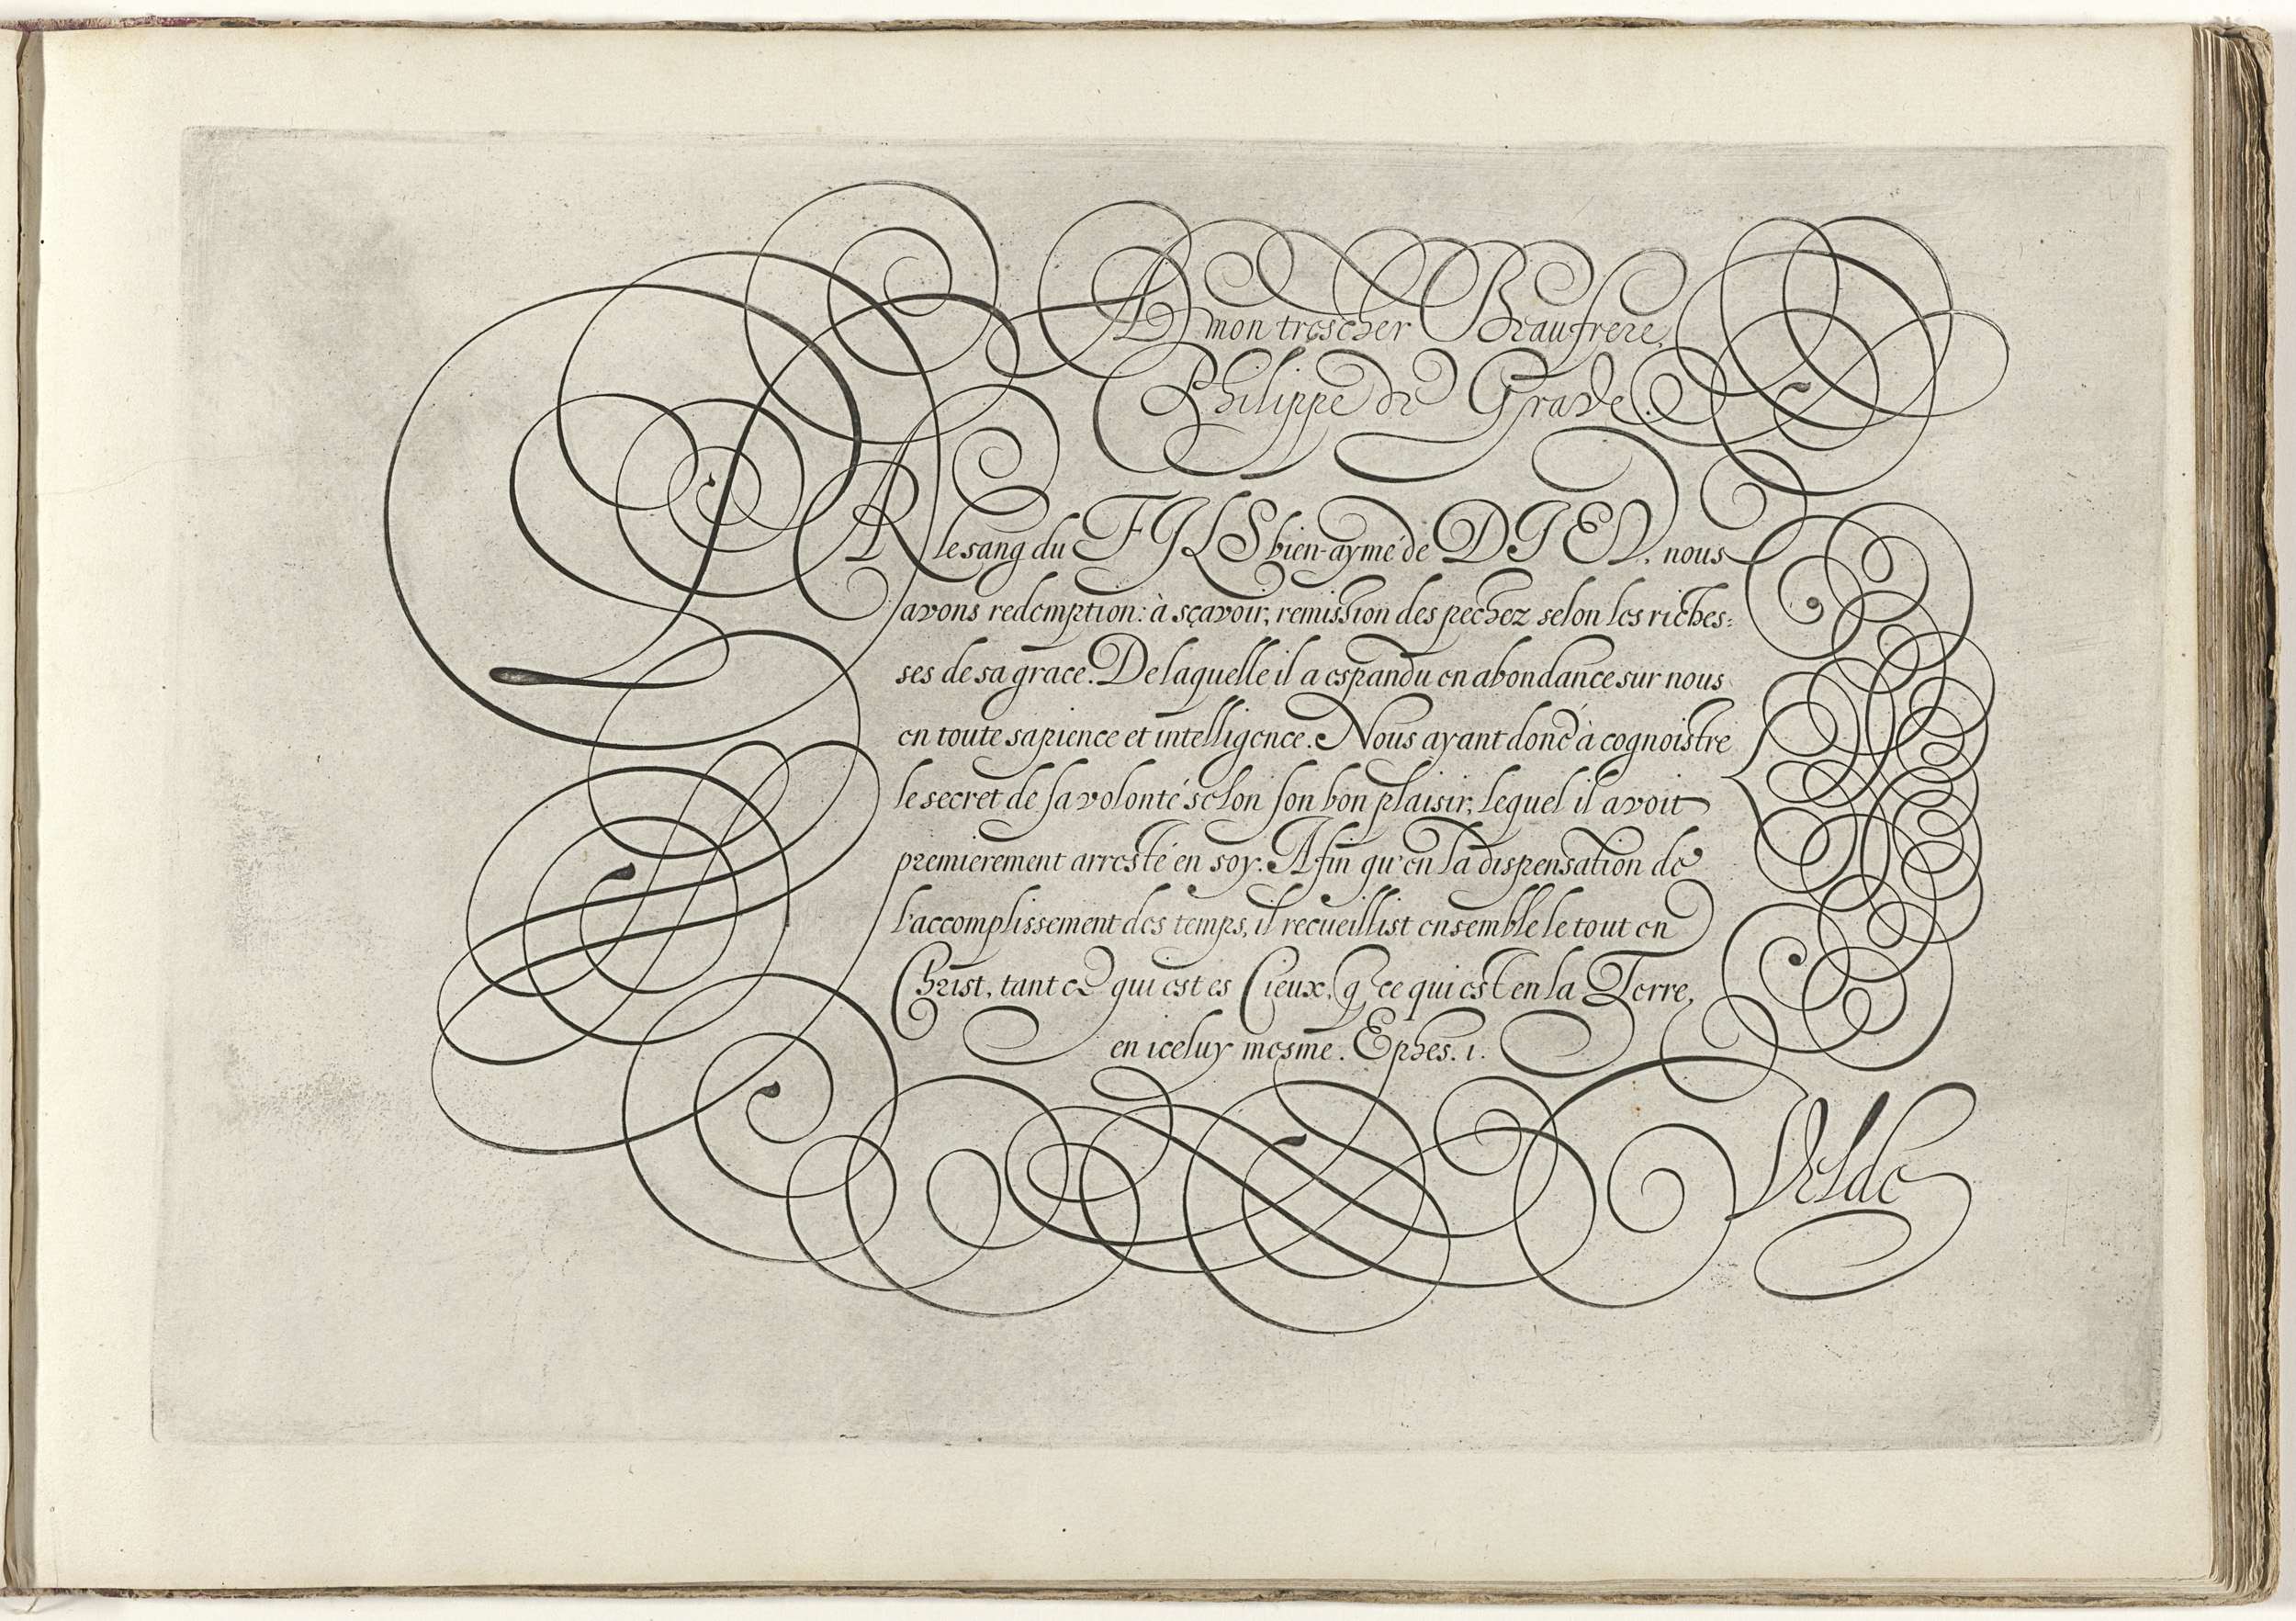 A mon trescher Beaufrere,
Philippe de Grade.
PAR le sang du FILS bien-aymé de DIEV, nous
avons redemption: à sçavoir, remission des pechez selon les riches:
ses de sa grace. De laquelle il a espandu en abondance sur nous
en toute sapience et intelligence. Nous ayant doné à cognoistre
le secret de sa volonté selon son bon plaisir, lequel il avoit
premierement arresté en soy. Afin qu'en la dispensation de
l'accomplissement des temps, il recueillist ensemble le tout en
Christ, tant ce qui est es Cieux, q ce qui est en la Terre,
en iceluy mesme. Ephes. 1.
Velde